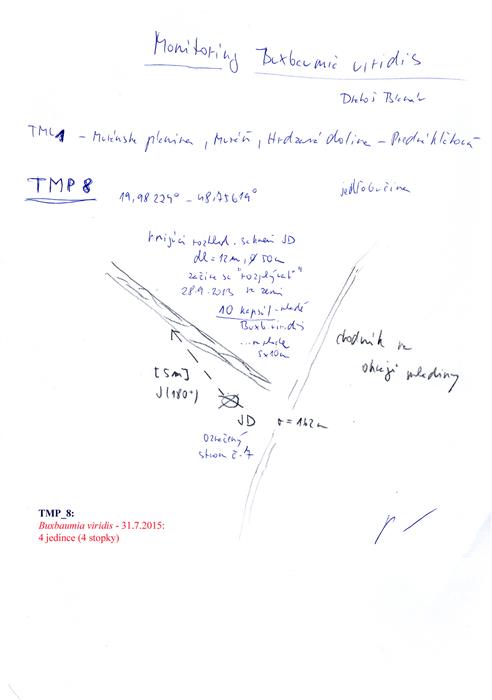 Monitoring Buxbaumia viridis
Drahoš Blanár
TML1 - Muránska planina, Muráň, Hrdzavá dolina - Predná kľaková
TMP 8 19,98224° - 48,75614° jedľobučina
hnijúci rozklad. sa kmeň JD
dl = 12m, Ø 50cm
začína sa "rozplývať"
28.9.2013 v zemi
10 kapsúl - mladé
Buxb. viridis
... na ploche
5x10m
chodník na
okraji mladiny
[5m]
J (180°)
JD σ = 142cm
označený
strom č. 7
TMP_8:
Buxbaumia viridis - 31.7.2015:
4 jedince (4 stopky)